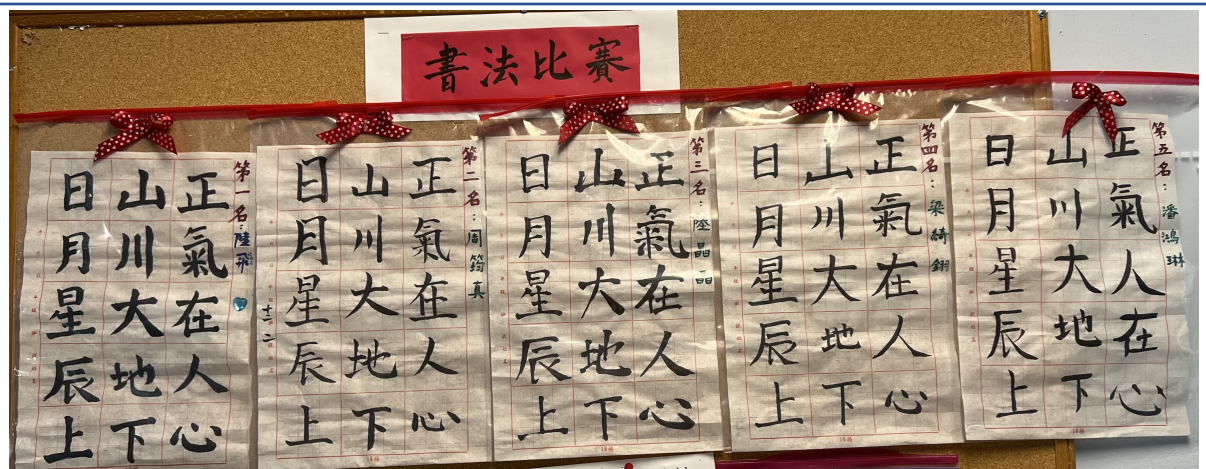 書法比賽
第一名：陸飛
正氣在人心
山川大地下
日月星辰上
第二名：周筠真
正氣在人心
山川大地下
日月星辰上
第三名：陸晶晶
正氣在人心
山川大地下
日月星辰上
第四名：梁綺
正氣在人心
山川大地下
日月星辰上
第五名：潘鴻琳
正氣人在心
山川大地下
日月星辰上